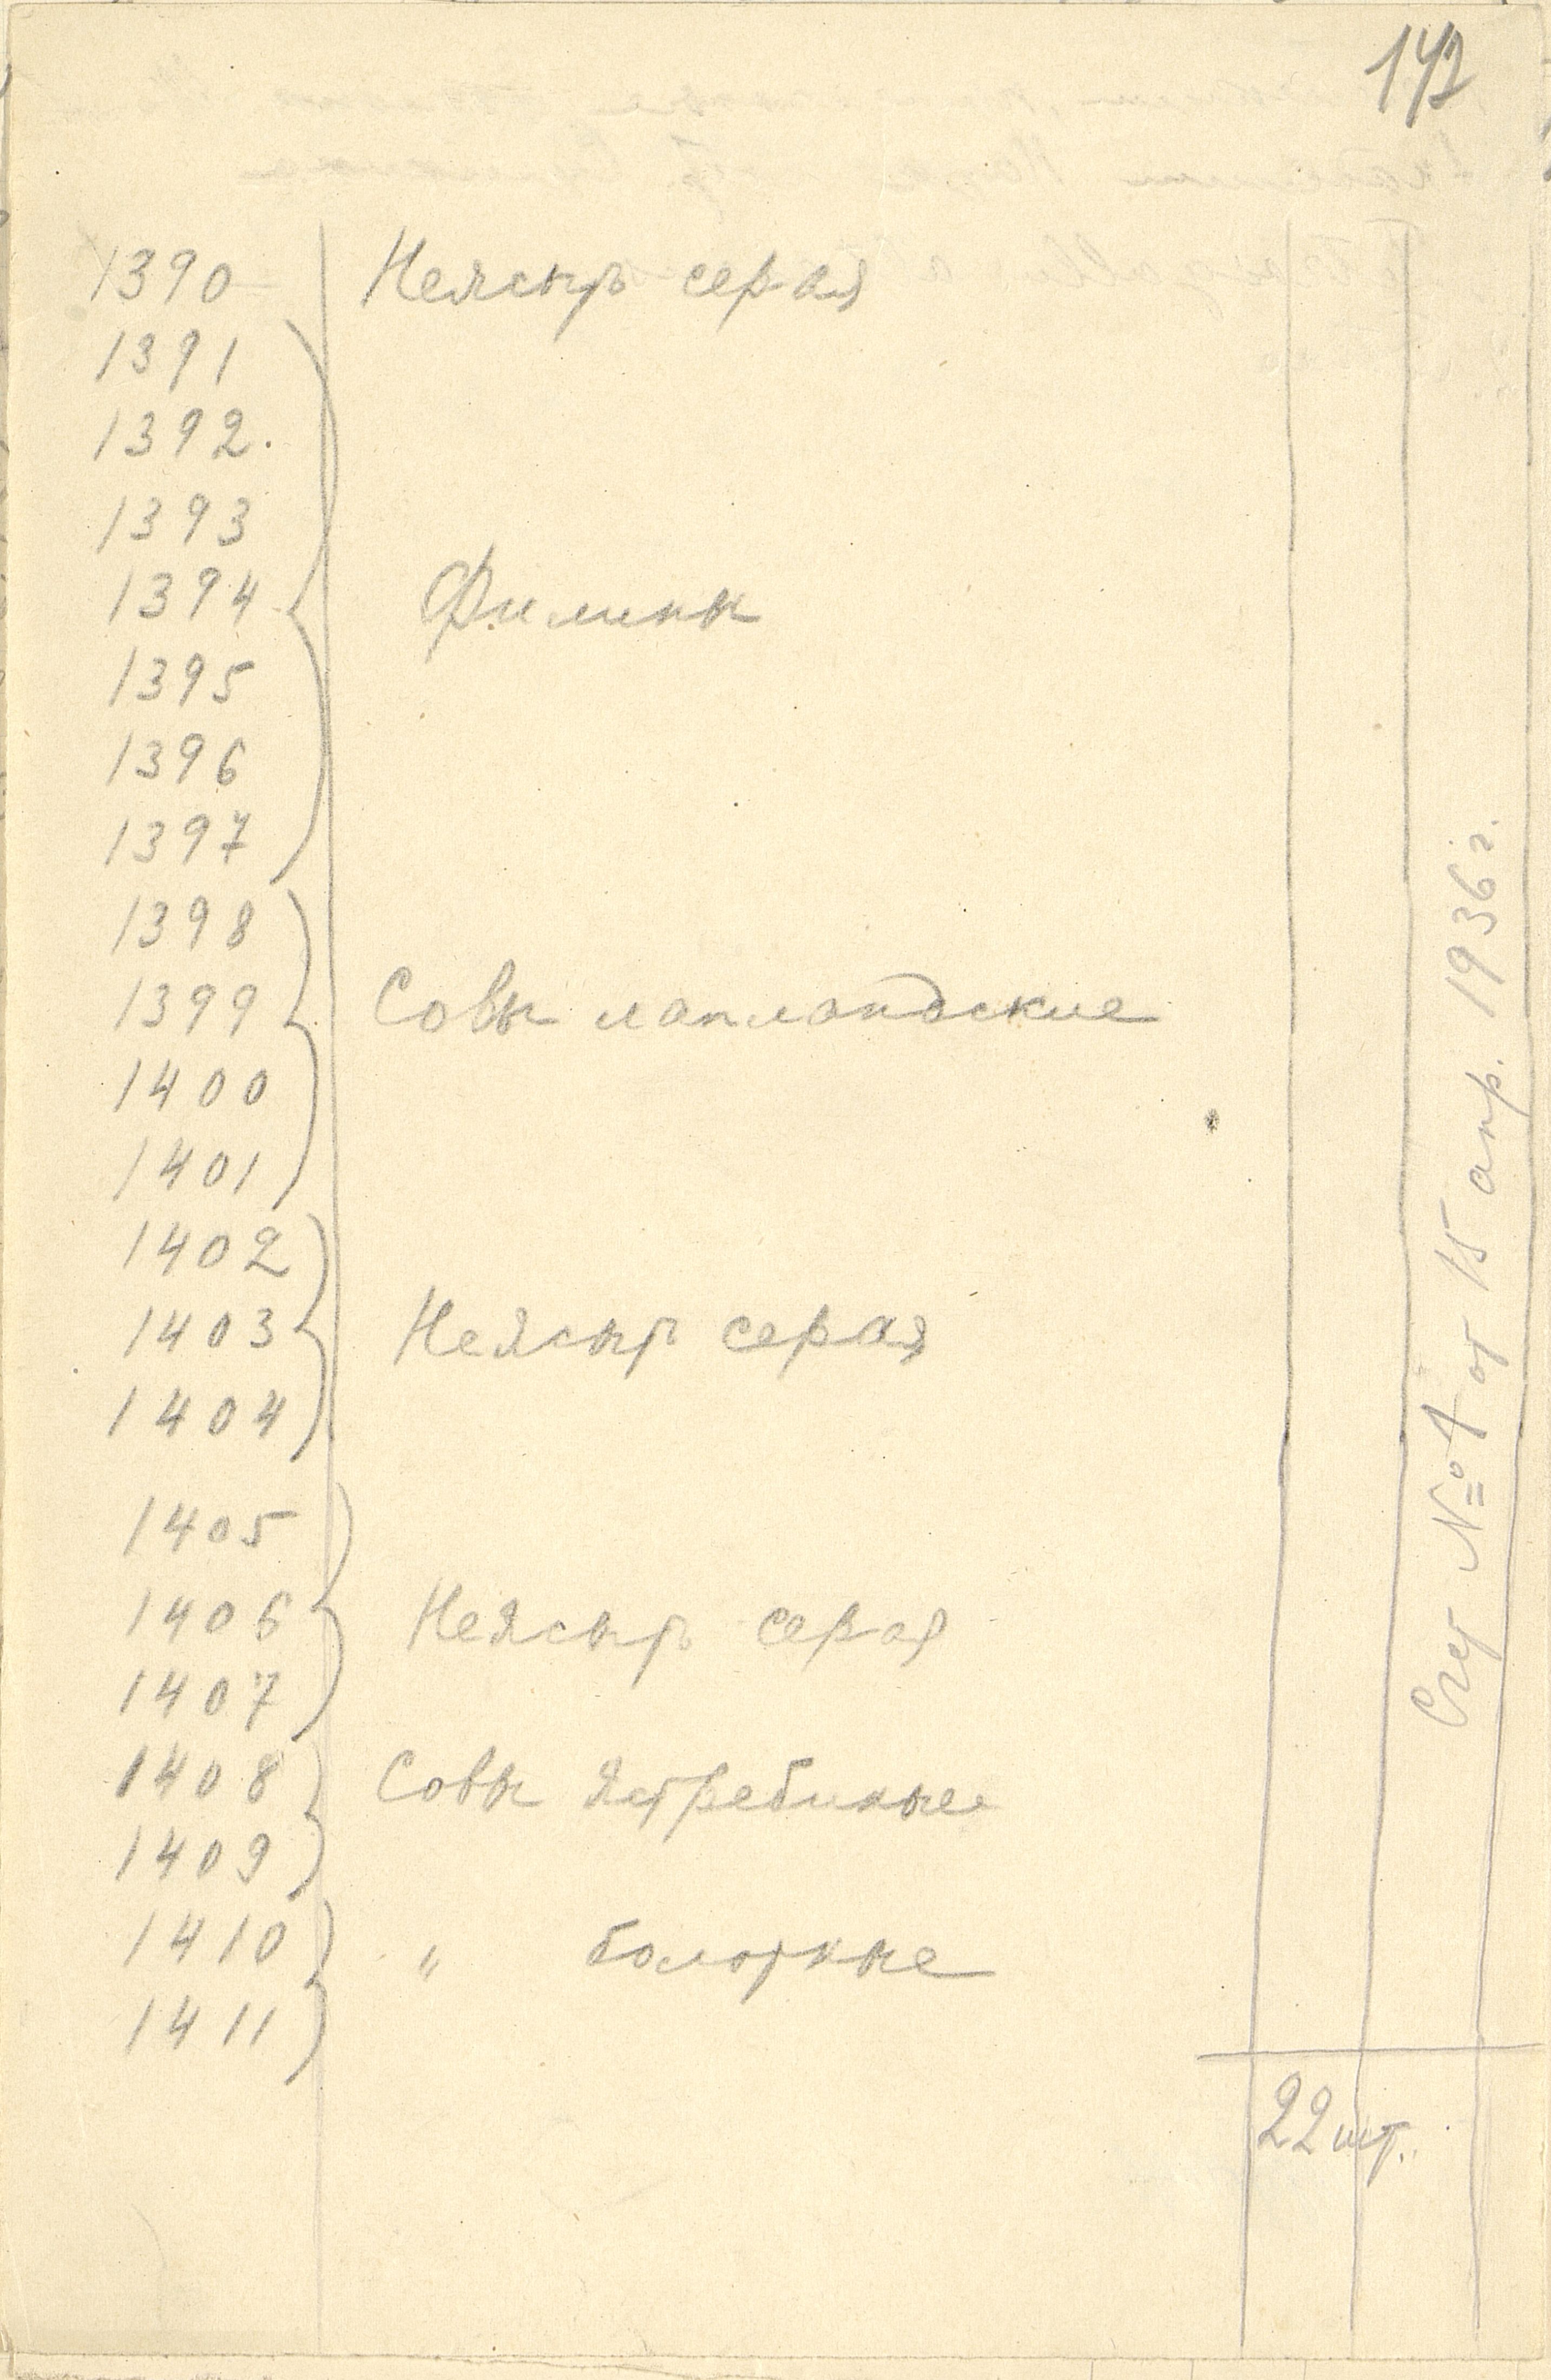 142
1390 Неясыть серая
1391
1392.
1393
1394 Филины
1395
1396
1397
1398
1399 Совы лапландские
1400
1401
1402
1403 Неясыть серая
1404
1405
1406 Неясыть серая
1407
1408 Совы ястребиные
1409
1410 " болотные
1411
Счет № 4 от 15 апр. 1936 г.
22 шт.